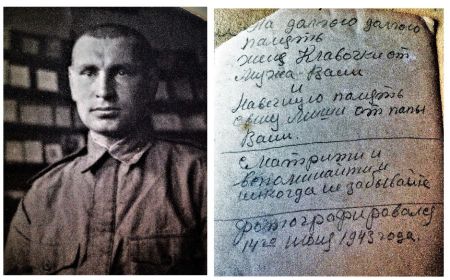 На долгою долгого
память
жене Клавочки от
Мужа Васи
и
На вечную память
сыну Мише от папы
Васи.
Сматрити и
вспоминайти и
никогда не забывайте
фотографировался
14го июня 1943 года.